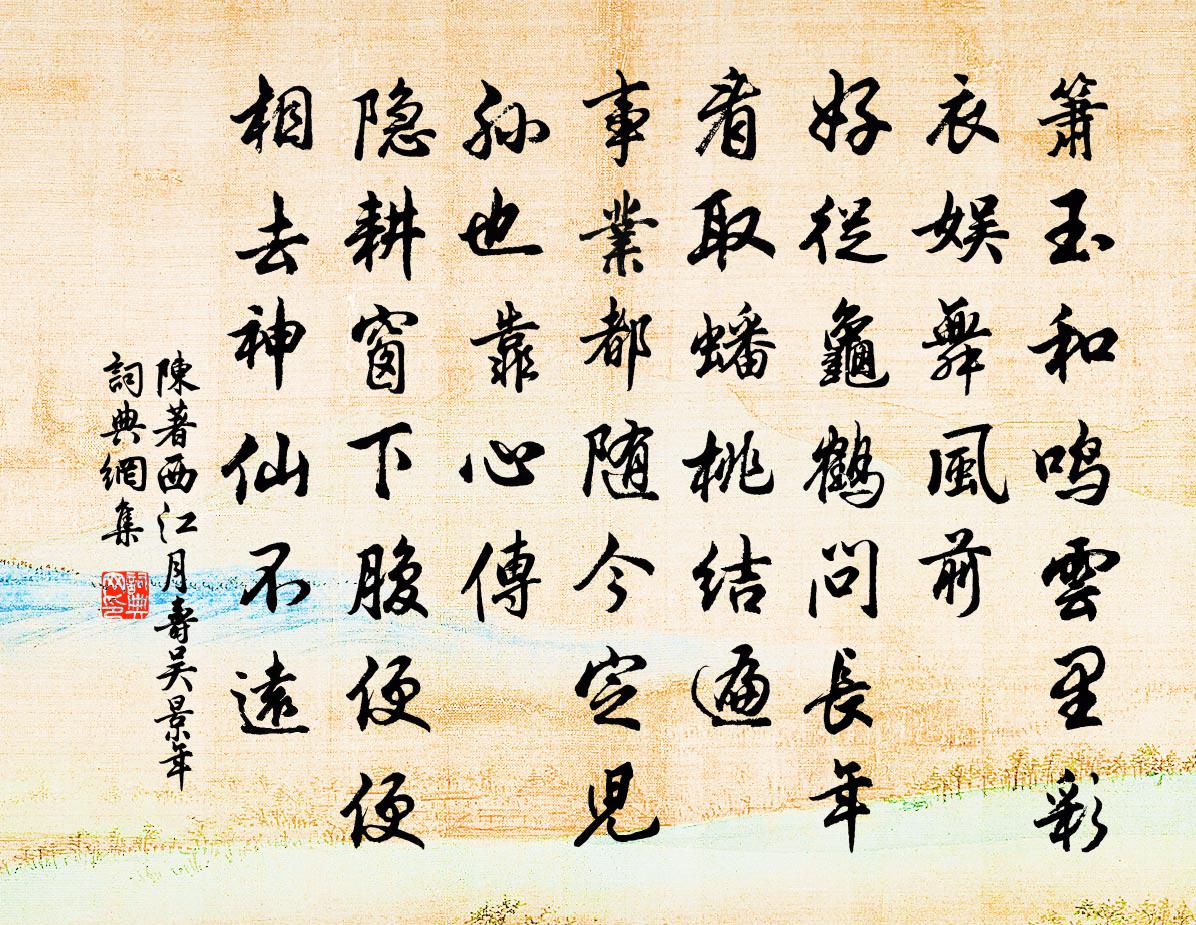 箫玉和鸣雲里彩
衣娱舞風前
好從龜鶴问長年
看取蟠桃结遍
事業都随今定児
孙也靠心傳
隐耕窗下腹便便
相去神仙不遠
陳著西江月壽吴景年
詞典網集